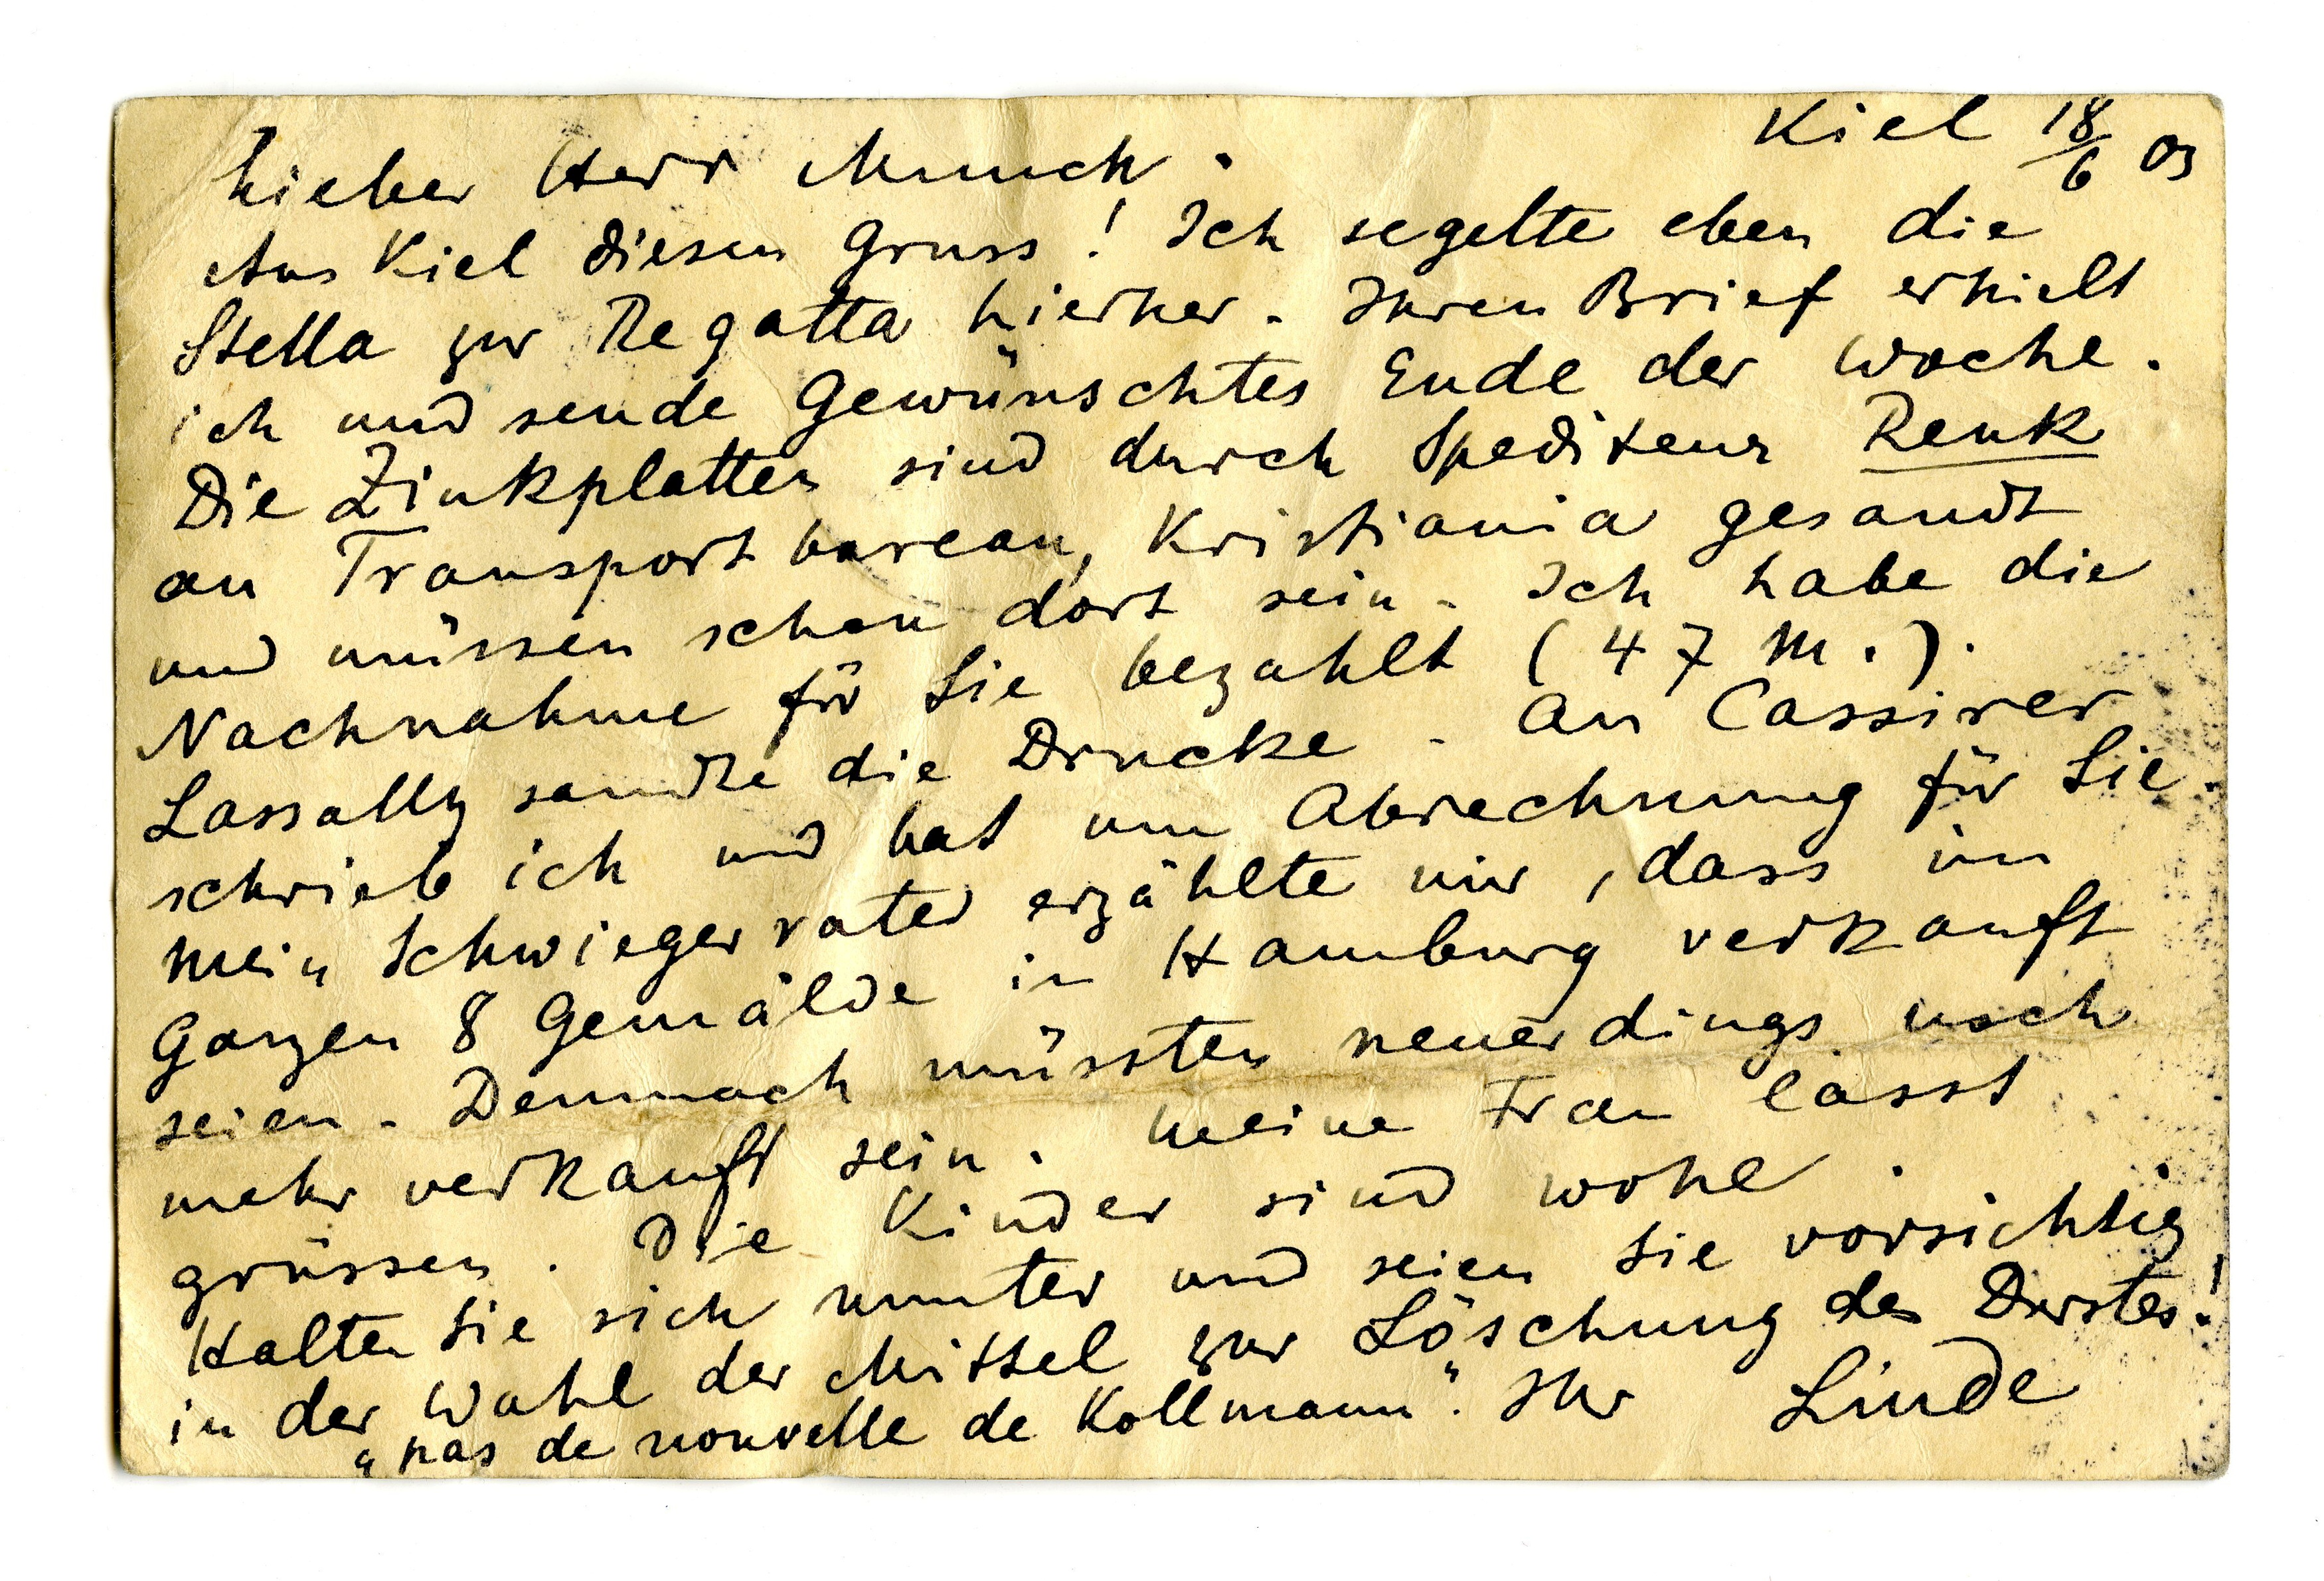 Kiel 18/6 03
Lieber Herr Munch.
Aus Kiel diesen Gruss! Ich segelte eben die
Stella zur Regatta hierher. Ihren Brief erhielt
ich und sende Gewünschtes Ende der Woche.
Die Zinkplatten sind durch Spediteur Renk
an Transportbureau, Kristiania gesandt
und müssen schon dort sein. Ich habe die
Nachnahme für Sie bezahlt (47 M.).
Lassally sandte die Drucke. An Cassirer
schrieb ich und bat um Abrechnung für Sie.
Mein Schwiegervater erzählte mir, dass im
Ganzen 8 Gemälde in Hamburg verkauft
seien. Demnach müssten neuerdings noch
mehr verkauft sein. Meine Frau lässt
grüssen. Die Kinder sind wohl.
Halten Sie sich munter und seien Sie vorsichtig
in der Wahl der Mittel zur Löschung des Durstes!
„pas de nouvelle de Kollmann". Ihr Linde